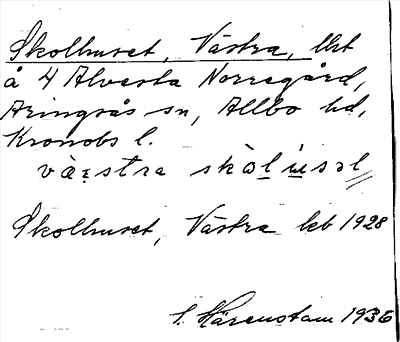 Skolhuset, Västra, lht
å 4 Alvesta Norregård,
Aringsås sn, Allbo hd,
Kronobs l.
væ̀stra skòl ɯsəl
Skolhuset, Västra kb 1928
S. Härenstam 1936